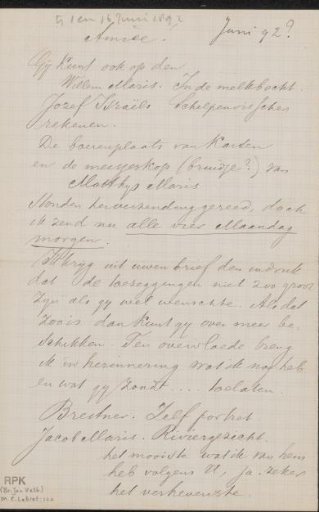 tussen 16 Juni 1892
Amice! Juni 92?
Gij kunt ook op den
Willem Maris. In de melkbocht.
Jozef Israëls Schelpenvisscher
rekenen.
De boerenplaats van
en de meisjeskop (bruidje?) van
Matthijs Maris
Worden ter verzending gereed, doch
ik zend nu alle vier Maandag
morgen.
Ik krijg uit uwen brief den indruk
dat de toezeggingen niet zoo groot
zijn als gij wel wenschte. Als dat
zoo is dan kunt gij over meer be-
schikken. Ten overvloede breng
ik in herinnering wat ik nu heb
en wat gij zondt ... toelaten
Breitner. Zelfportret
Jacob Maris. Riviergezicht.
het mooiste wat ik van hem
heb volgens U, ja zeker
het verhevenste.
RPK
(Br. Jan Veth)